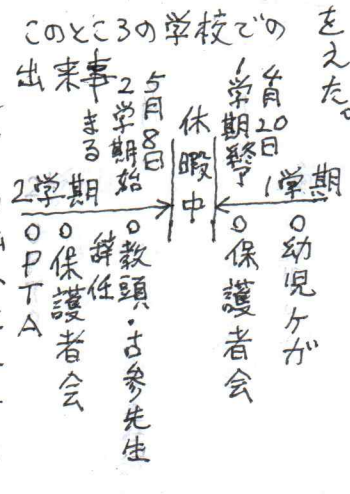 をえた。
このところの学校での
出来事
4月20日
1学期終了
休暇中
5月8日
2学期始
まる
1学期
2学期
○幼児ケガ
○保護者会
○教頭・古参先生
辞任
○保護者会
○PTA